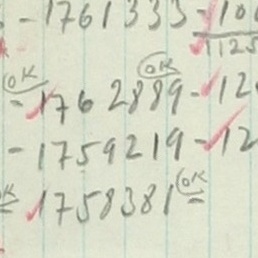 - 1761333 - 100
1125
OK OK
- 1762889 - 12
- 1759219 - 12
OK = 1758381 OK =